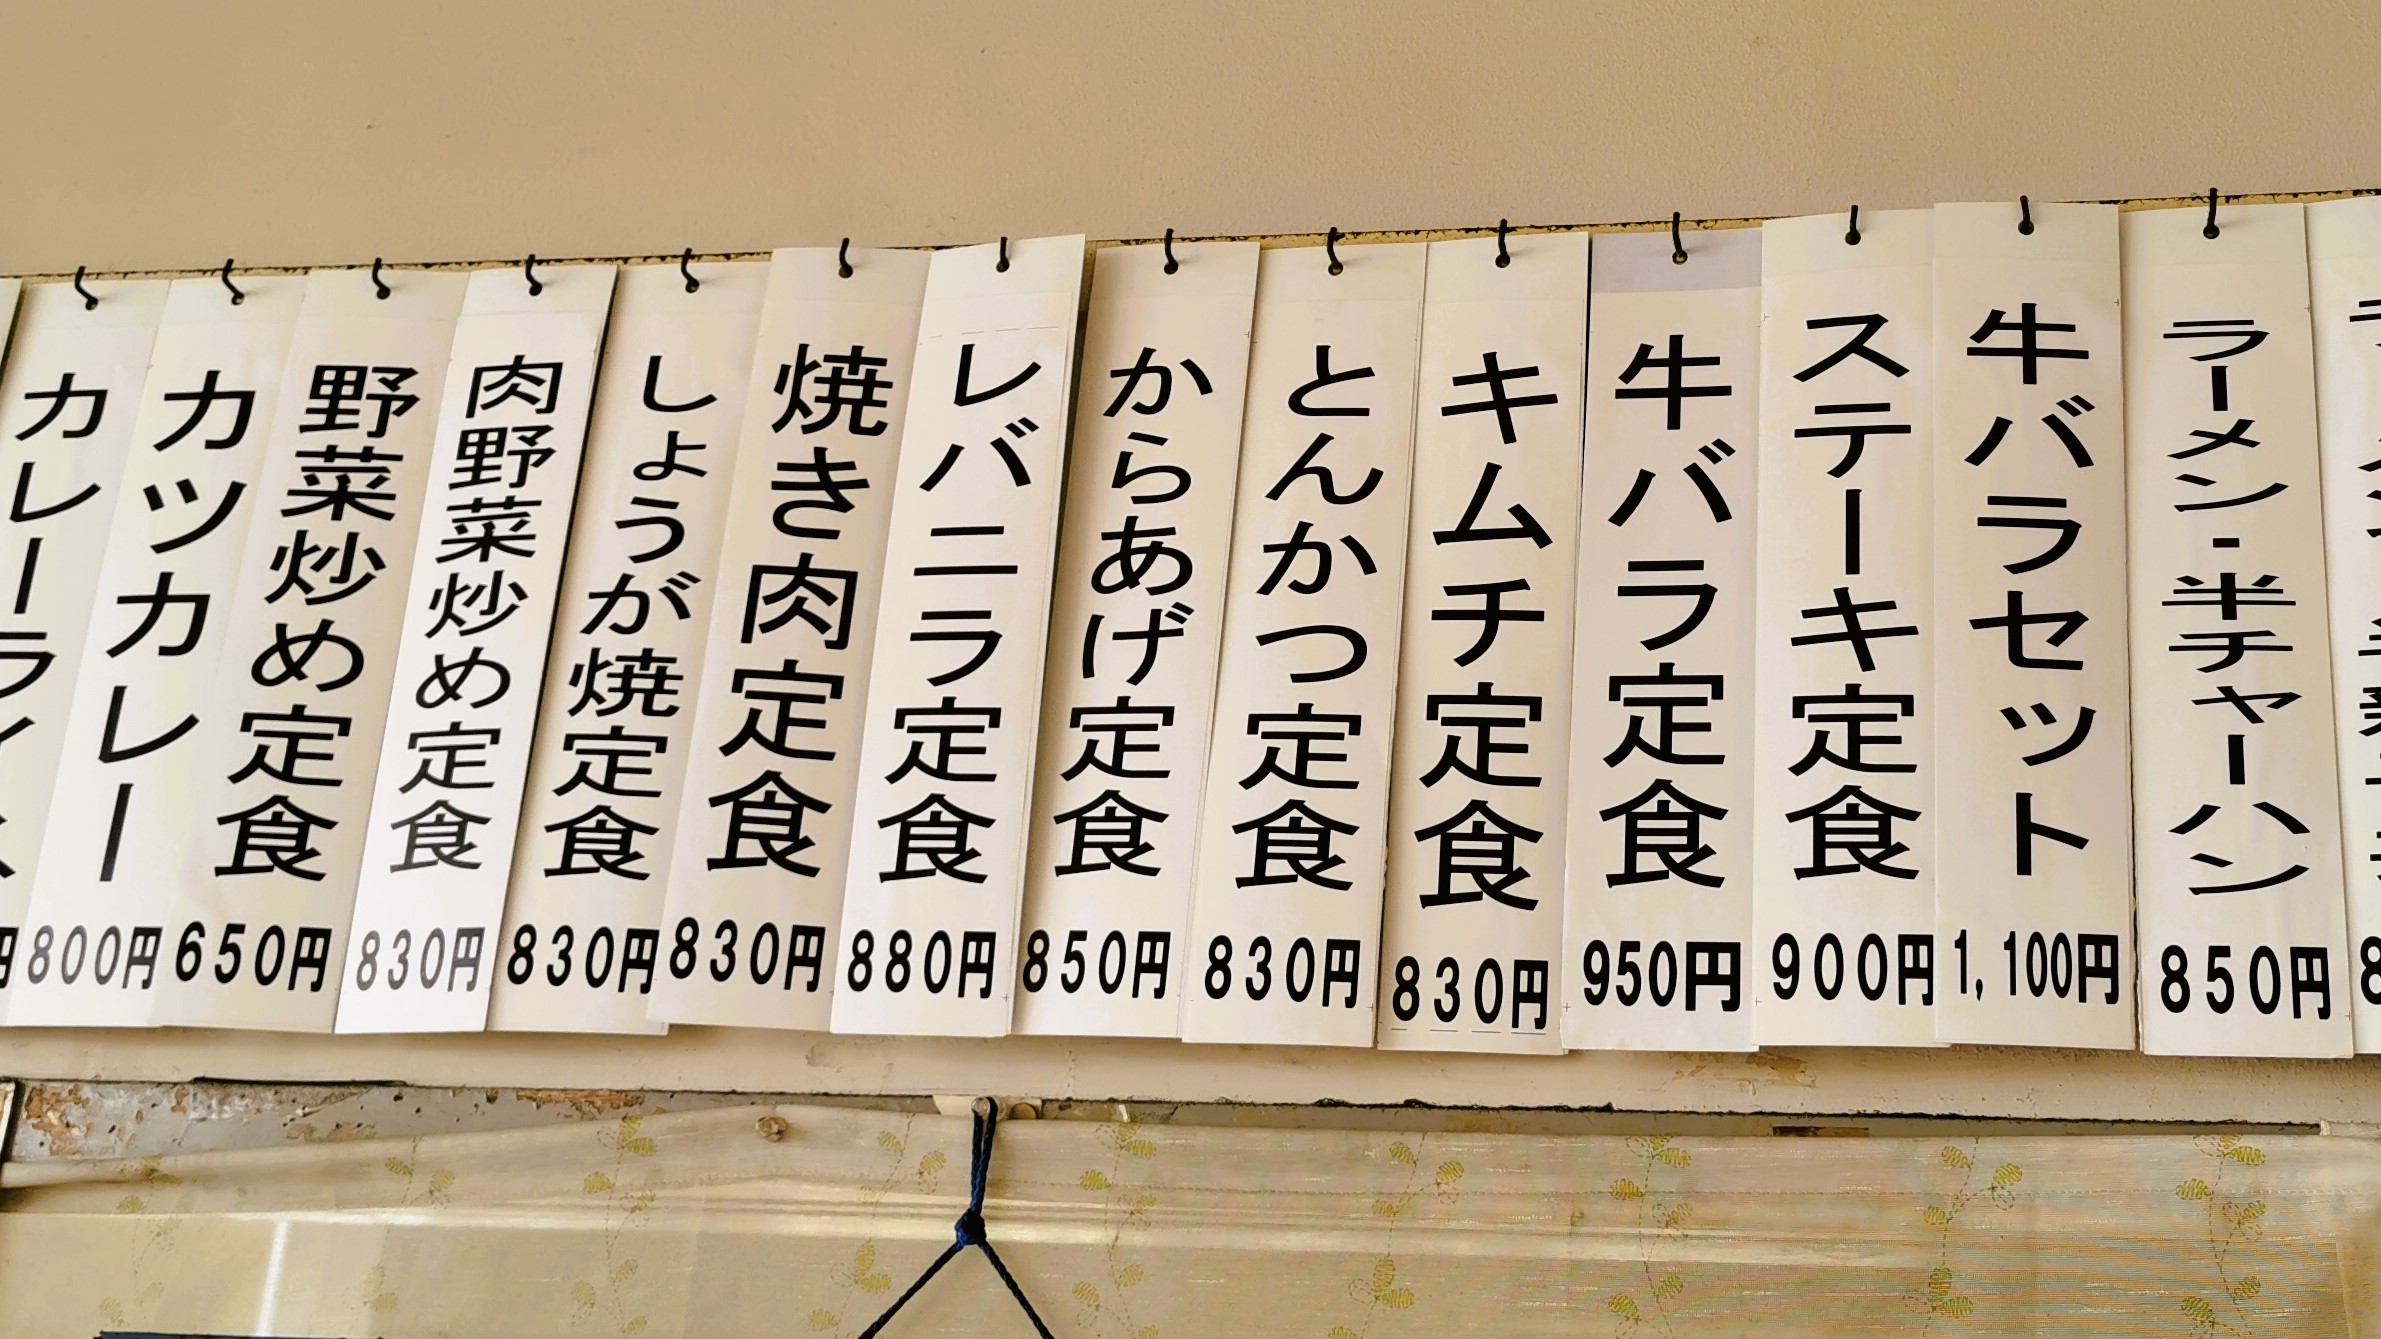 ラーメン・半チャーハン
850円
牛バラセット
1,100円
ステーキ定食
900円
牛バラ定食
950円
キムチ定食
830円
とんかつ定食
830円
からあげ定食
850円
レバニラ定食
880円
焼き肉定食
830円
しょうが焼定食
830円
肉野菜炒め定食
830円
野菜炒め定食
650円
カツカレー
800円
カレーライス
円